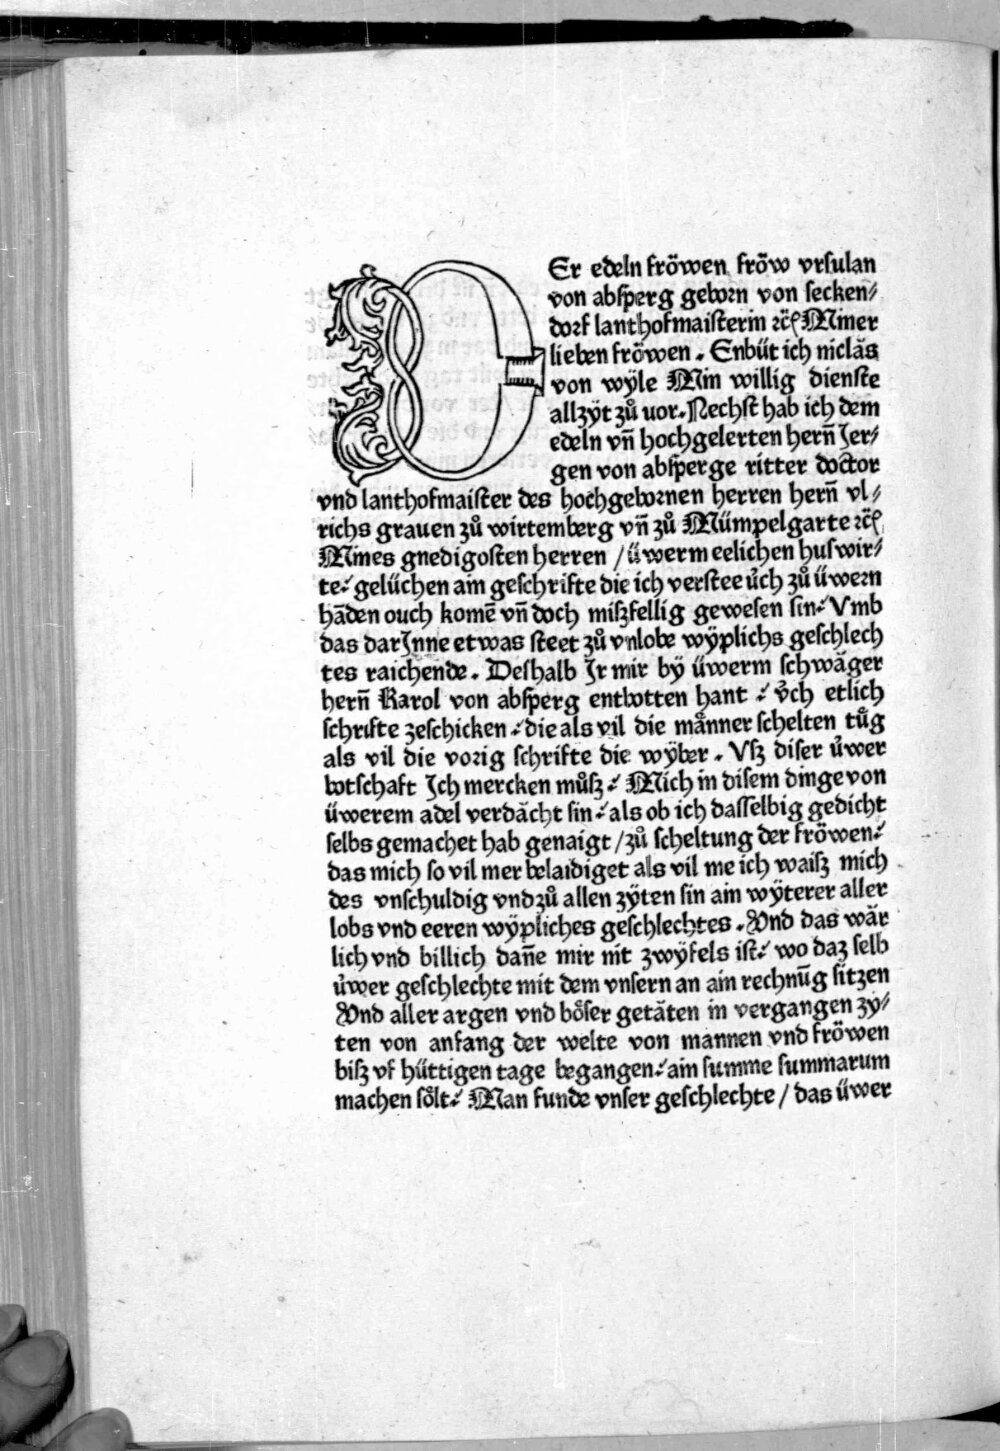 DEr edeln fröwen fröw vrsulan
von absperg geborn von secken⸗
dorf lanthofmaisterin ꝛc̃ Miner
lieben fröwen . Enbüt ich niclăs
von wÿle Min willig dienste
allzÿt zů uor . Nechst hab ich dem
edeln vn̄ hochgelerten hern̄ Jer⸗
gen von absperge ritter doctor
vnd lanthofmaister des hochgebornen herren hern̄ vl⸗
richs grauen zů wirtemberg vn̄ zů Mümpelgarte ꝛc̃
Mines gnedigosten herren / üwerm eelichen huswir⸗
te⸝ gelüchen ain geschrifte die ich verstee ůch zů üwern
hāden ouch komē vn̄ doch miszfellig gewesen sin⸝ Vmb
das dar Jnne etwas steet zů vnlobe wÿplichs geschlech
tes raichende . Deshalb Jr mir bÿ üwerm schwăger
hern̄ Karol von absperg entbotten hant ⸝ v̊ch etlich
schrifte zeschicken ⸝ die als vil die månner schelten tůg
als vil die vorig schrifte die wÿber . Vsz diser ůwer
botschaft Jch mercken můsz ⸝ Mich in disem dinge von
üwerem adel verdăcht sin ⸝ als ob ich dasselbig gedicht
selbs gemachet hab genaigt / zů scheltung der fröwen ⸝
das mich so vil mer belaidiget als vil me ich waisz mich
des vnschuldig vnd zů allen zÿten sin ain wÿterer aller
lobs vnd eeren wÿpliches geschlechtes . Vnd das wăr
lich vnd billich dan̄e mir nit zwÿfels ist ⸝ wo daz selb
ůwer geschlechte mit dem vnsern an ain rechnūg sitzen
Vnd aller argen vnd böser getăten in vergangen zy⸗
ten von anfang der welte von mannen vnd fröwen
bisz vf hüttigen tage begangen ⸝ ain summe summarum
machen sölt ⸝ Man funde vnser geschlechte / das üwer